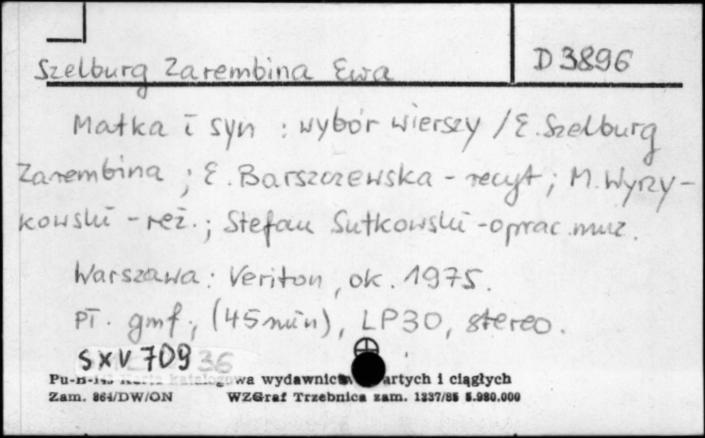 Szelburg Zarembina Ewa
D 3896
Matka i syn : wybór wierszy / E. Szelburg
Zarembina ; E. Barszczewska - recyt ; M. Wyrzy-
kowski - reż. ; Stefan Sutkowski - oprac. muz.
Warszawa : Veriton, ok. 1975.
Pł. gmf ; (45 min), LP30, stereo.
SXV 709 36
Pu-B-143 Karta katalogowa wydawnictw artych i ciągłych
Zam. 864/DW/ON WZGraf Trzebnica zam. 1337/85 5.980.000